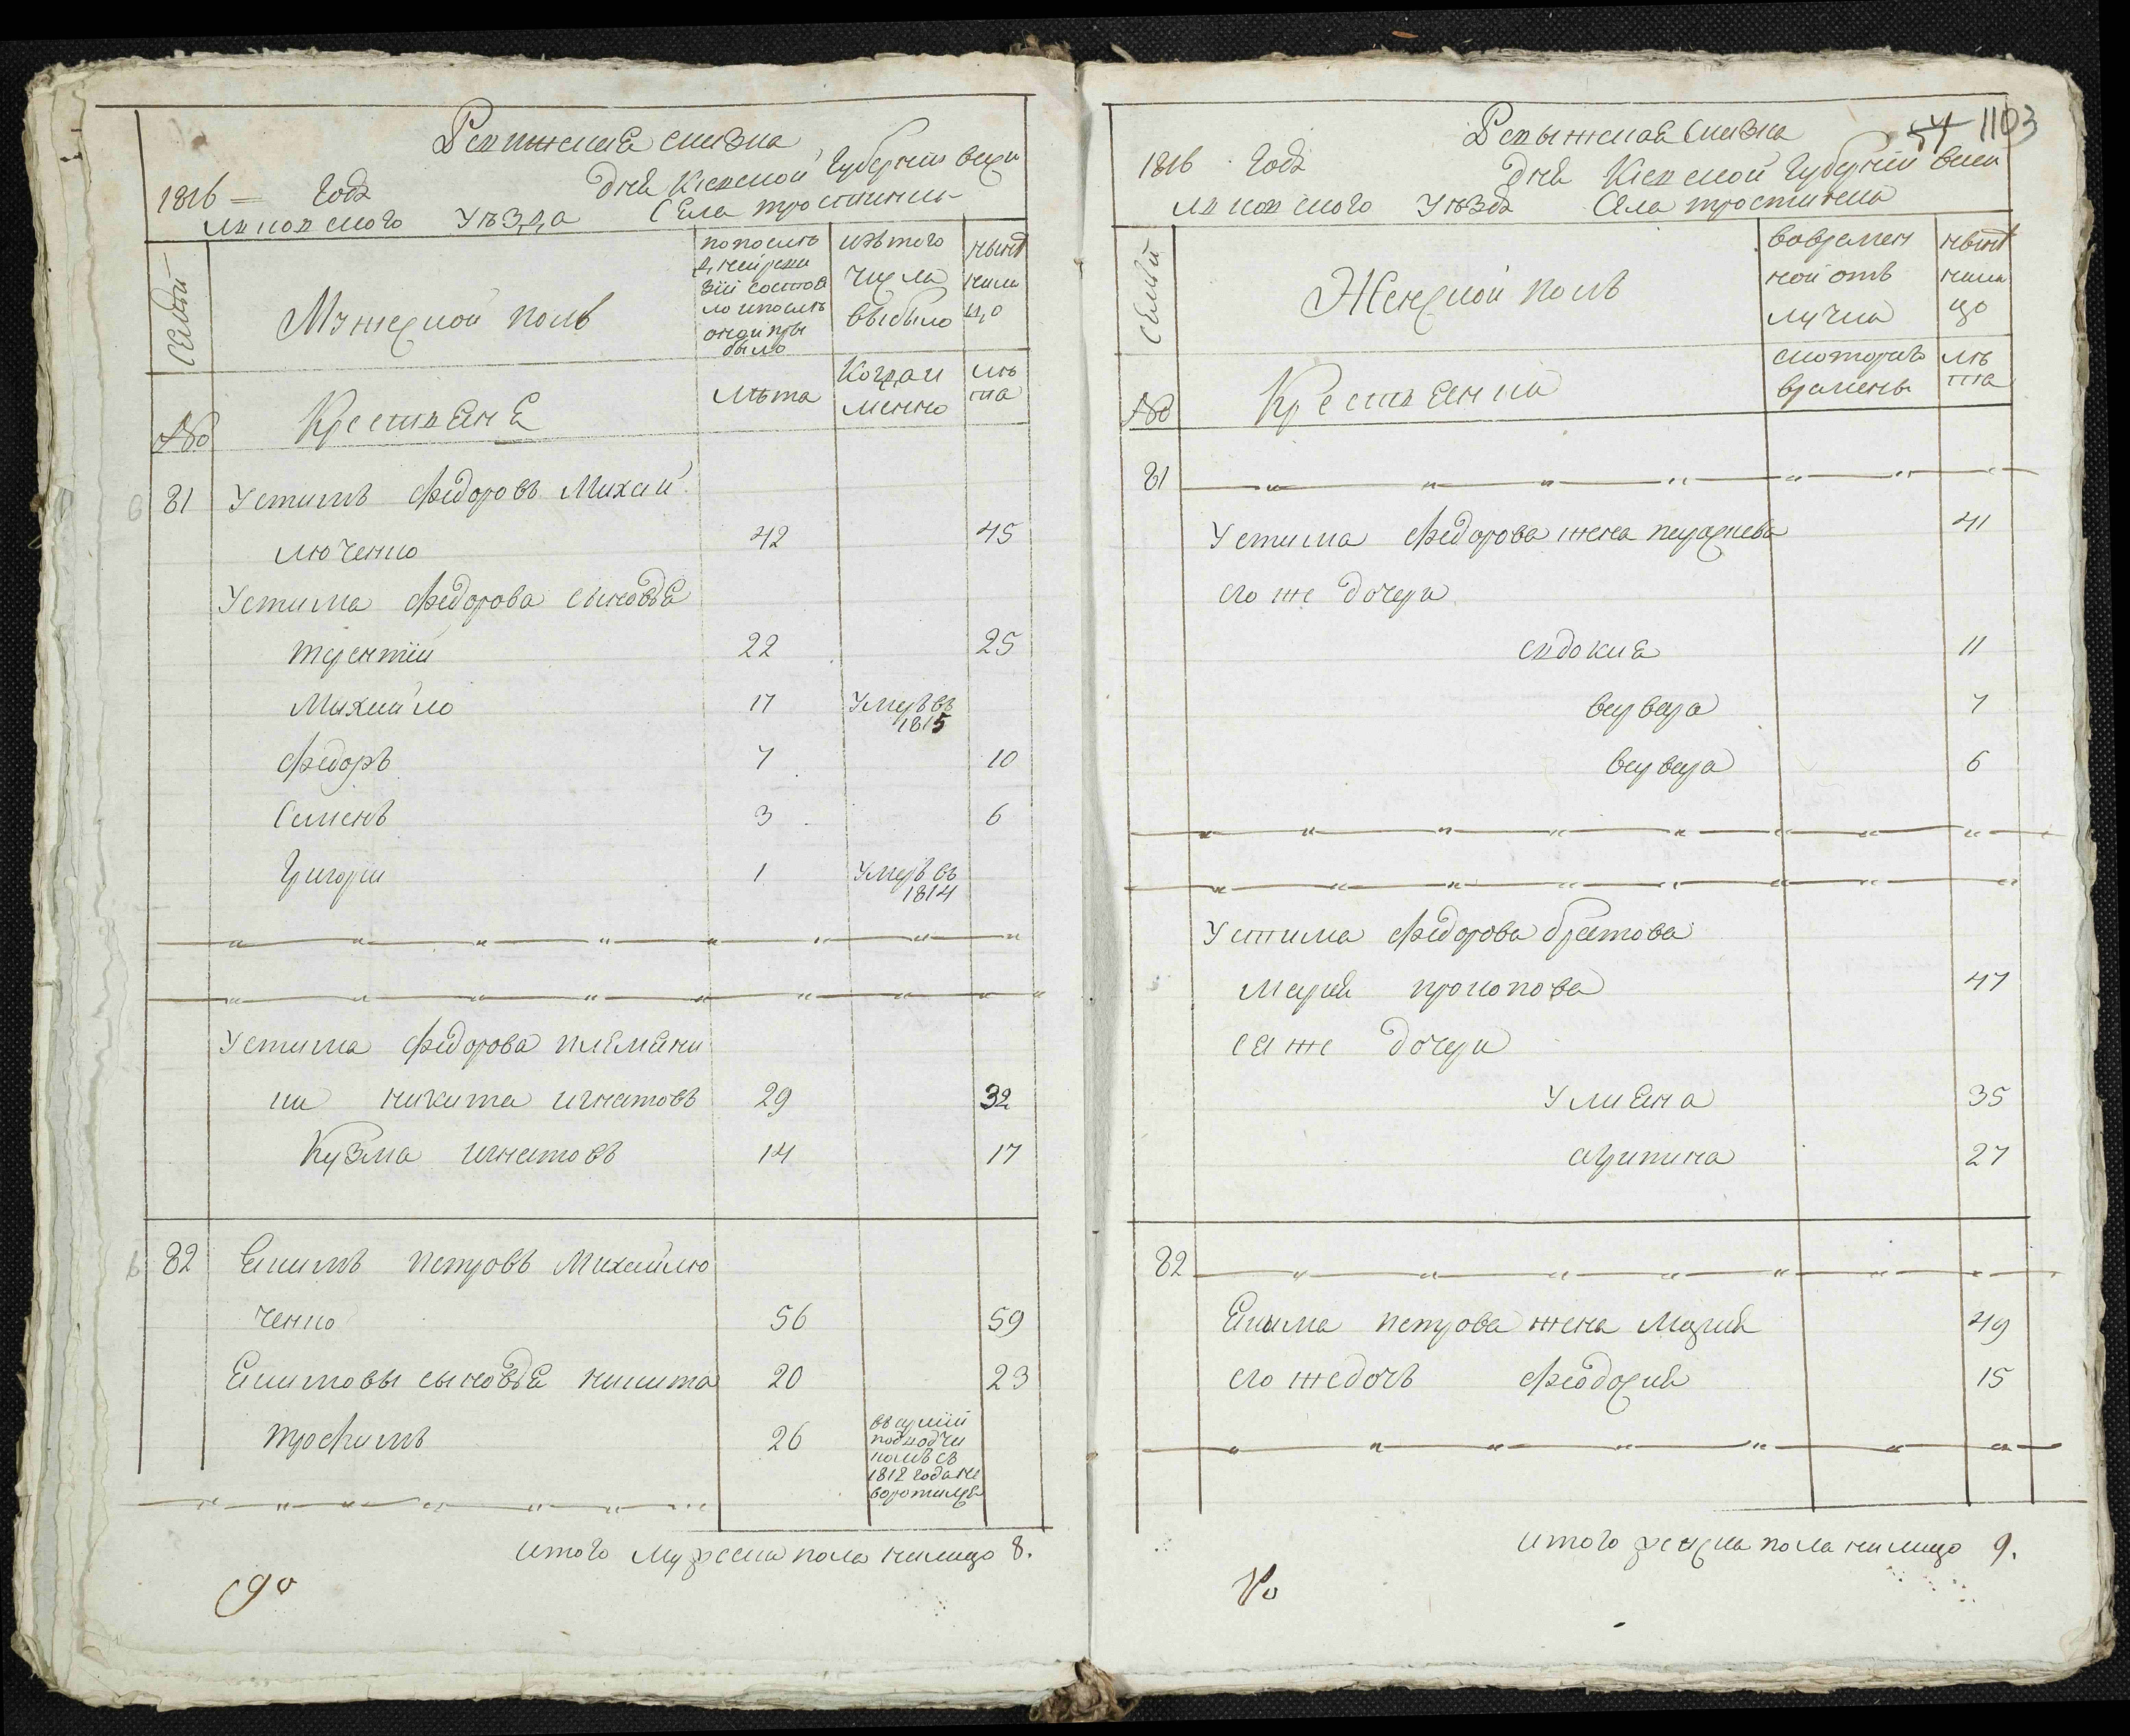 Ревижская сказка
1816 — года дня Киевской губернии васи
льковского уѣзда села тростинки
Семьи
Мужеской полъ
по послѣ
дней реви
зіи состоя
ло и послѣ
оной при
было
изъ того
числа
выбыло
нынѣ
нали
цо
№
Крестьяне
лѣта
Когда и
менно
лѣ
та
81 Устимъ Федоровъ Михай
люченко 42 45
Устима Федорова сыновья
терентій 22 25
Михайло 17 умеръ въ
1815
Федоръ 7 10
Семенъ 3 6
Григори 1 умеръ въ
1814
Устима Федорова племяни
ки никита игнатовъ 29 32
Кузма игнатовъ 14 17
82 Екимъ петровъ Михайлю
ченко 56 59
Екимовы сыновья никита 20 23
трофимъ 26 въ армій
1812 года не
воротился
итого мужеска пола налицо 8.
1103
Ревыжская сказка
1816 года дня Киевской губерніи васи
льковского уѣзда села тростинки
Семьи
Женской полъ
во времен
ной отъ
лучки
нынѣ
нали
цо
№
Крестьянки
с которого
времены
лѣ
та
81
Устима Федорова жена параскева 41
его же дочери
евдокия 11
варвара 7
варвара 6
Устима Федорова братова
Мария прокопова 47
ея же дочери
Улияна 35
агрипина 27
82
Екима петрова жена Мария 49
его же дочь Феодосия 15
итого женска пола налицо 9.